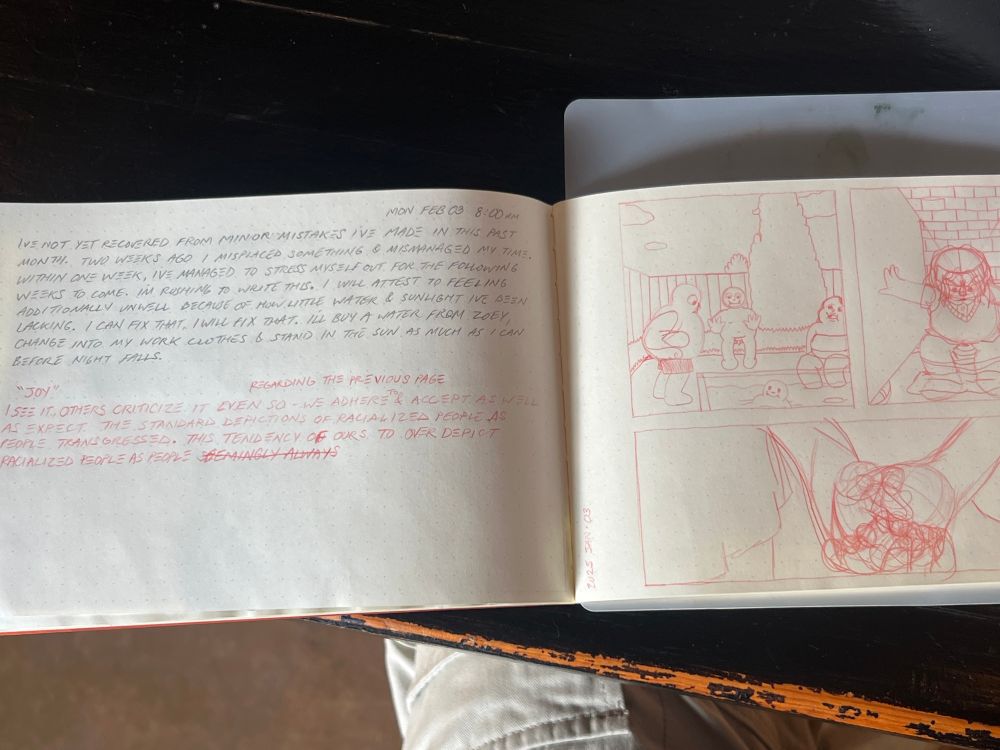 MON FEB 03 8:00AM
I'VE NOT YET RECOVERED FROM MINOR MISTAKES I'VE MADE IN THIS PAST
MONTH. TWO WEEKS AGO I MISPLACED SOMETHING & MISMANAGED MY TIME.
WITHIN ONE WEEK, I'VE MANAGED TO STRESS MYSELF OUT FOR THE FOLLOWING
WEEKS TO COME. I'M RUSHING TO WRITE THIS. I WILL ATTEST TO FEELING
ADDITIONALLY UNWELL BECAUSE OF HOW LITTLE WATER & SUNLIGHT I'VE BEEN
LACKING. I CAN FIX THAT. I WILL FIX THAT. I'LL BUY A WATER FROM ZOEY,
CHANGE INTO MY WORK CLOTHES & STAND IN THE SUN AS MUCH AS I CAN
BEFORE NIGHT FALLS.
"JOY" REGARDING THE PREVIOUS PAGE
I SEE IT, OTHERS CRITICIZE IT EVEN SO - WE ADHERE TO & ACCEPT AS WELL
AS EXPECT THE STANDARD DEPICTIONS OF RACIALIZED PEOPLE AS
PEOPLE TRANSGRESSED. THIS TENDENCY OF OURS TO OVER DEPICT
RACIALIZED PEOPLE AS PEOPLE SEEMINGLY ALWAYS
2025 JAN. 03